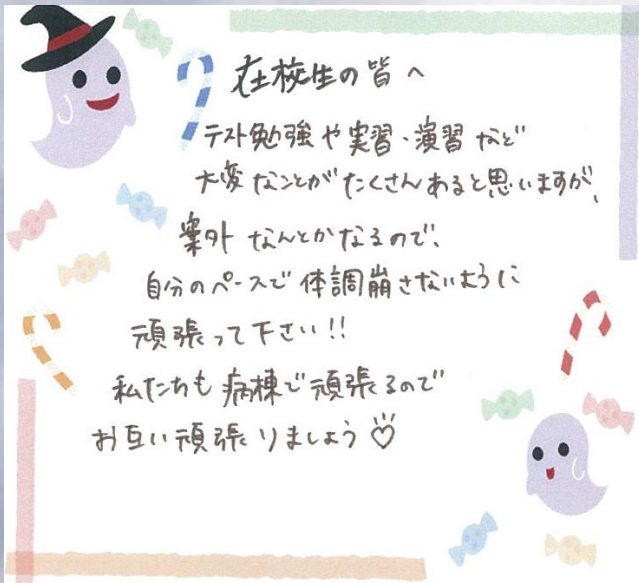 在校生の皆へ
テスト勉強や実習・演習など
大変なことがたくさんあると思いますが、
案外なんとかなるので、
自分のペースで体調崩さないように
頑張って下さい!!
私たちも病棟で頑張るので
お互い頑張りましょう♡